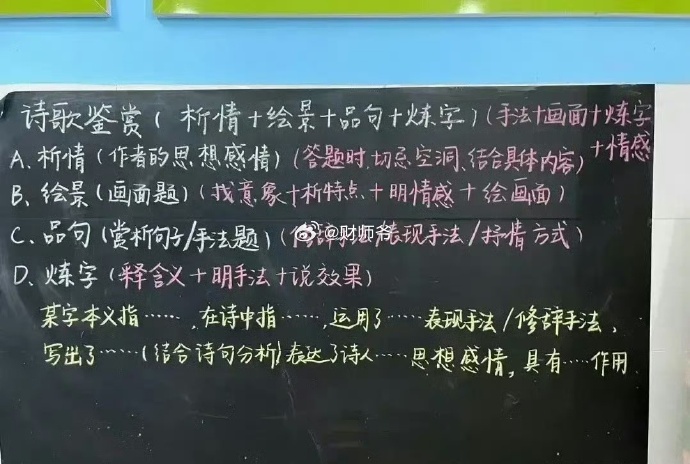 诗歌鉴赏(析情+绘景+品句+炼字)(手法+画面+炼字
+情感
A.析情(作者的思想感情)(答题时,切忌空洞、结合具体内容)
B.绘景(画面题)(找意象+析特点+明情感+绘画面)
C.品句(赏析句子/手法题)(修辞手法/表现手法/抒情方式)
@财师爷
D.炼字(释含义+明手法+说效果)
某字本义指……,在诗中指……,运用了……表现手法/修辞手法,
写出了……(结合诗句分析)表达了诗人……思想感情,具有……作用